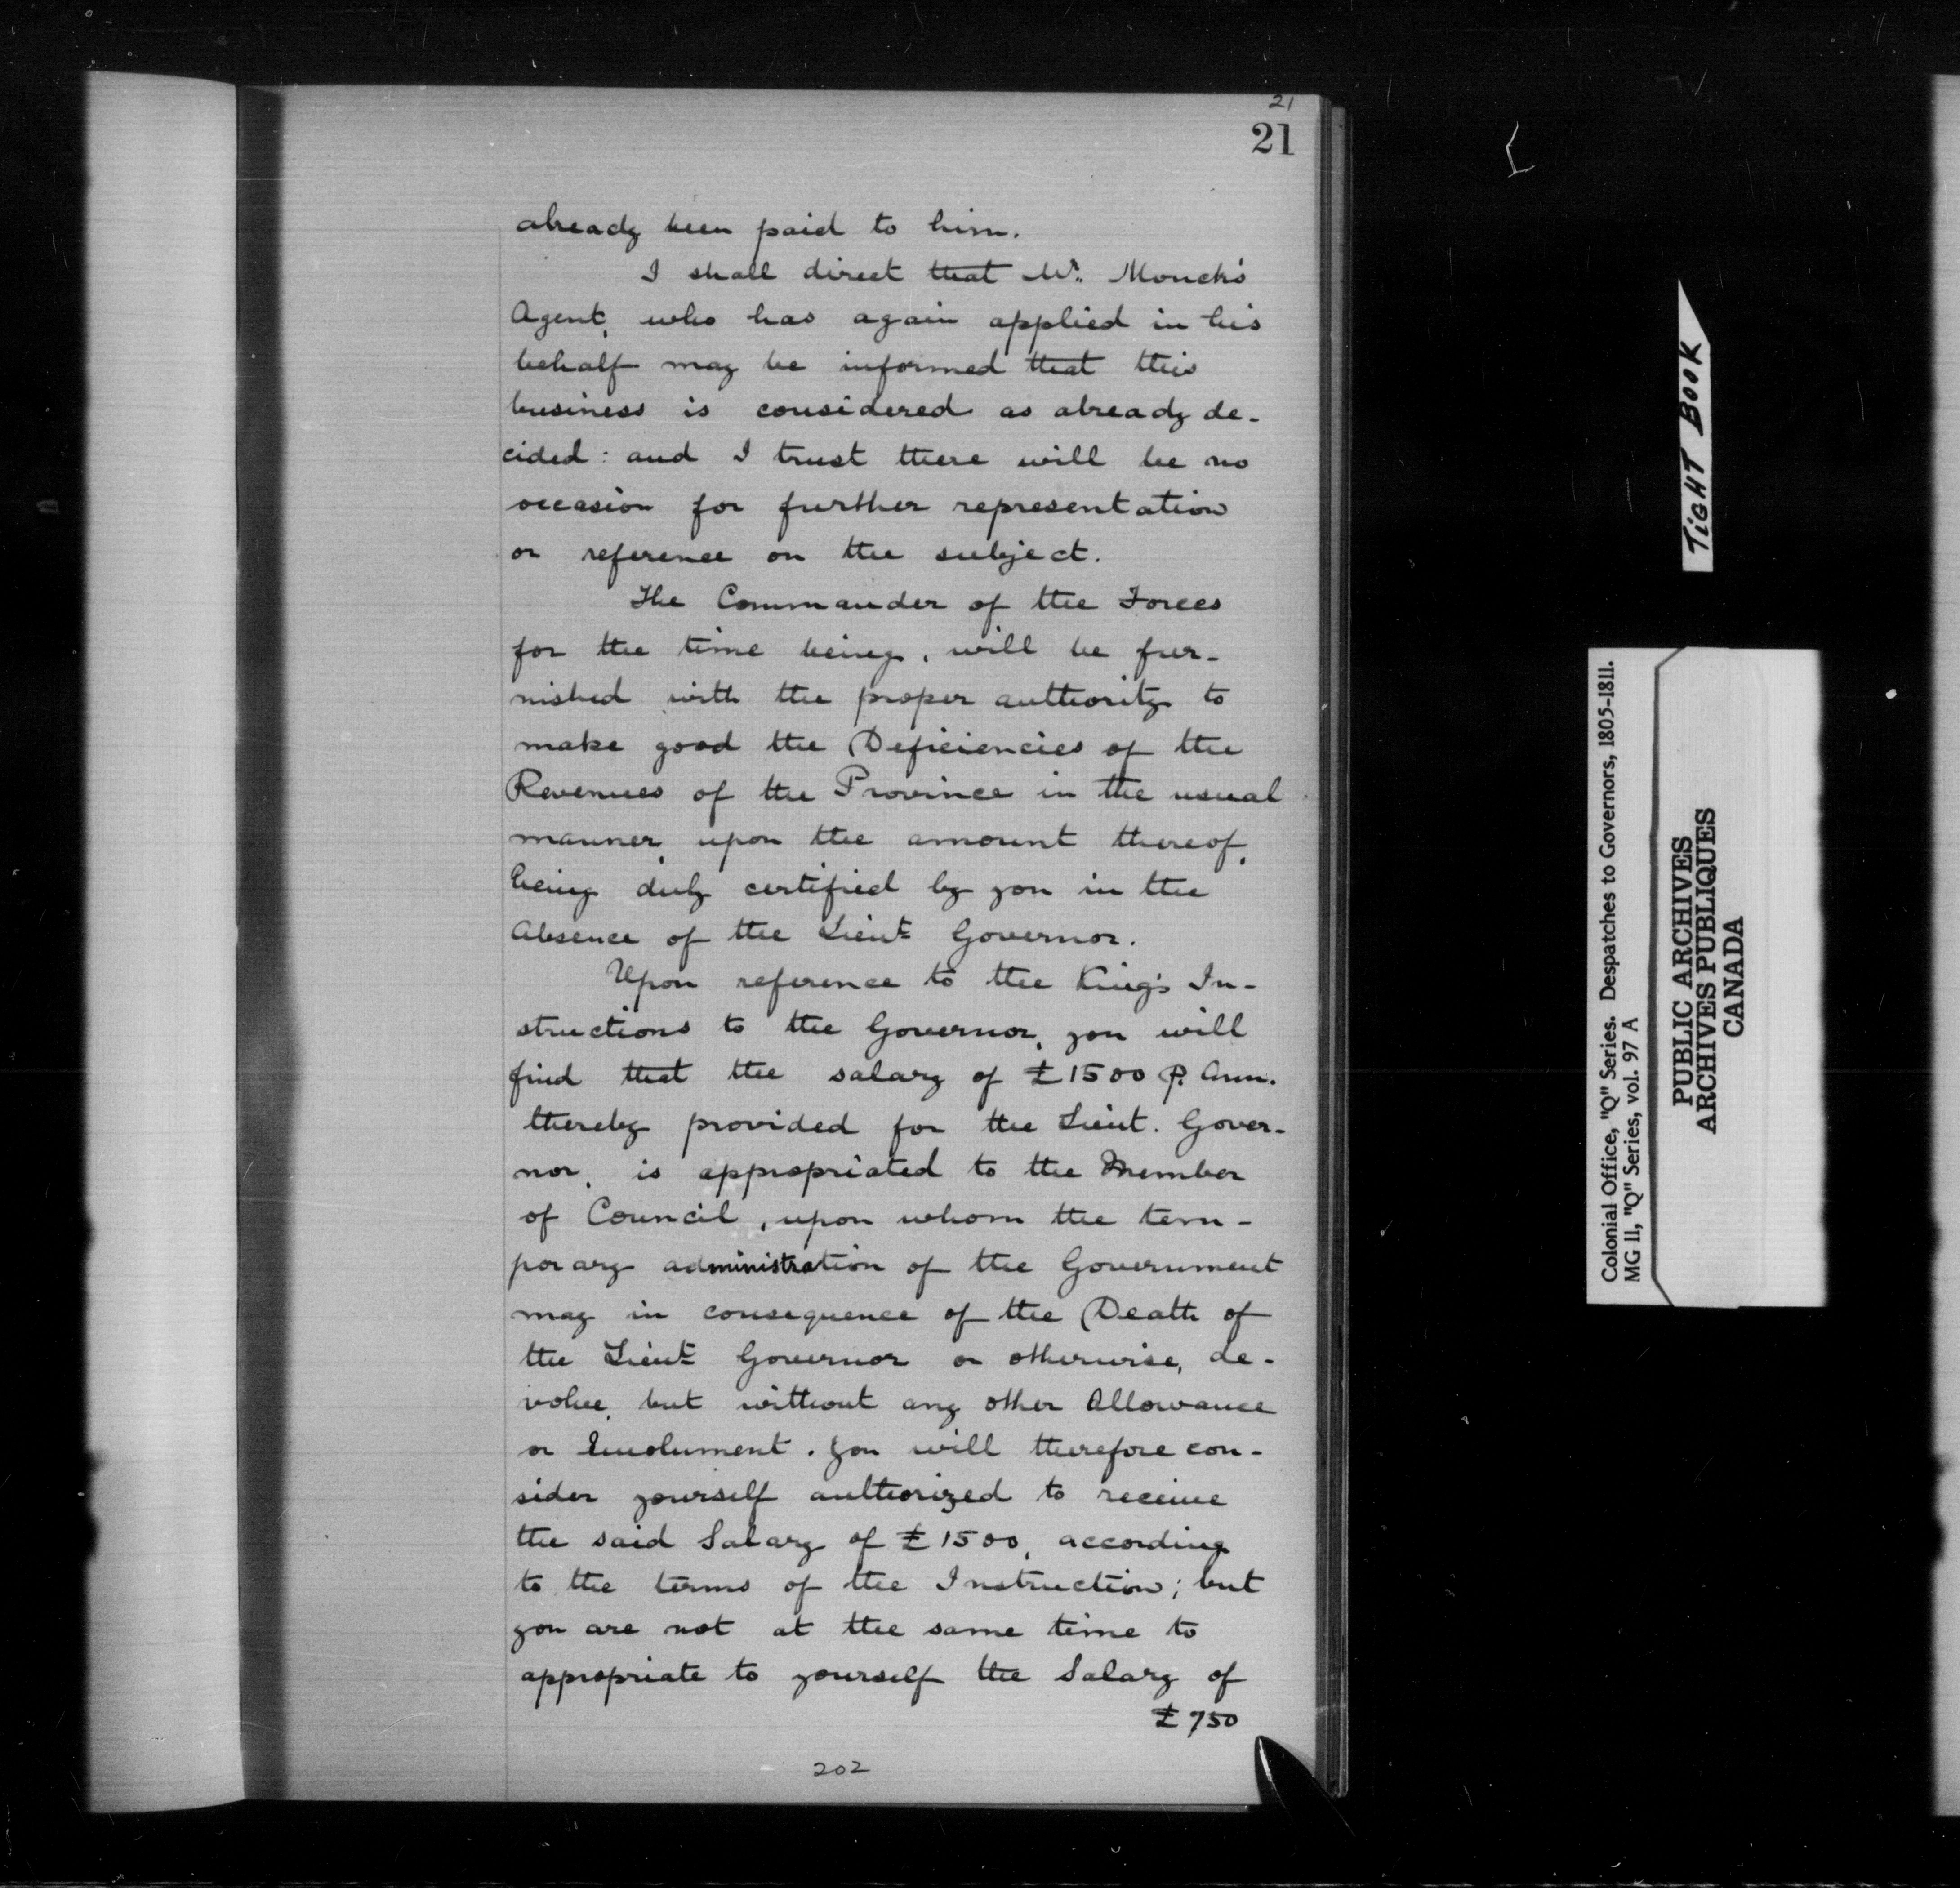 21
21
already been paid to him.
I shall direct that Mr. Monck's
Agent, who has again applied in his
behalf may be informed that this
business is considered as already de-
cided: and I trust there will be no
occasion for further representation
or reference on the subject.
The Commander of the Forces
for the time being, will be fur-
nished with the proper authority to
make good the Deficiencies of the
Revenues of the Province in the usual
manner, upon the amount thereof,
being duly certified by you in the
Absence of the Lieut Governor.
Upon reference to the King's In-
structions to the Governor, you will
find that the salary of £1500 P. Ann.
thereby provided for the Lieut. Gover-
nor, is appropriated to the Member
of Council, upon whom the tem-
porary administration of the Government
may in consequence of the Death of
the Lieut Governor or otherwise, de-
volve, but without any other Allowance
or Emolument. You will therefore con-
sider yourself authorized to receive
the said Salary of £1500, according
to the terms of the Instruction; but
you are not at the same time to
appropriate to yourself the Salary of
£750
202
TIGHT BOOK
Colonial Office, "Q" Series. Despatches to Governors, 1805-1811.
MG 11, "Q" Series, vol. 97 A
PUBLIC ARCHIVES
ARCHIVES PUBLIQUES
CANADA